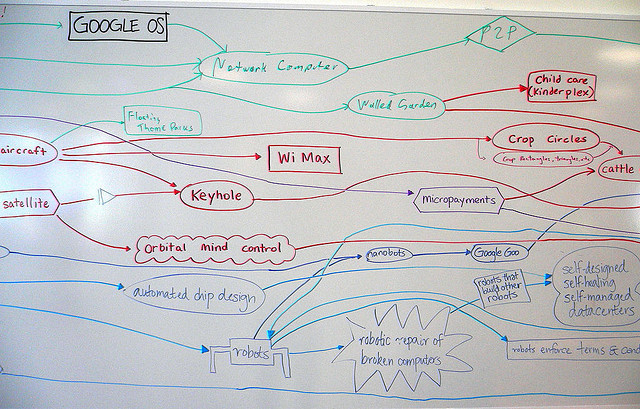 GOOGLE OS
P2P
Network Computer
Child care
(Kinderplex)
Walled Garden
Floating
Theme Parks
aircraft
Crop Circles
Crop Rectangles, triangles, etc
Wi Max
cattle
satellite
Keyhole
micropayments
Orbital mind control
nanobots
Google Goo
automated chip design
robots that
build other
robots
self-designed
self-healing
self-managed
datacenters
robots
robotic repair of
broken computers
robots enforce terms & cond